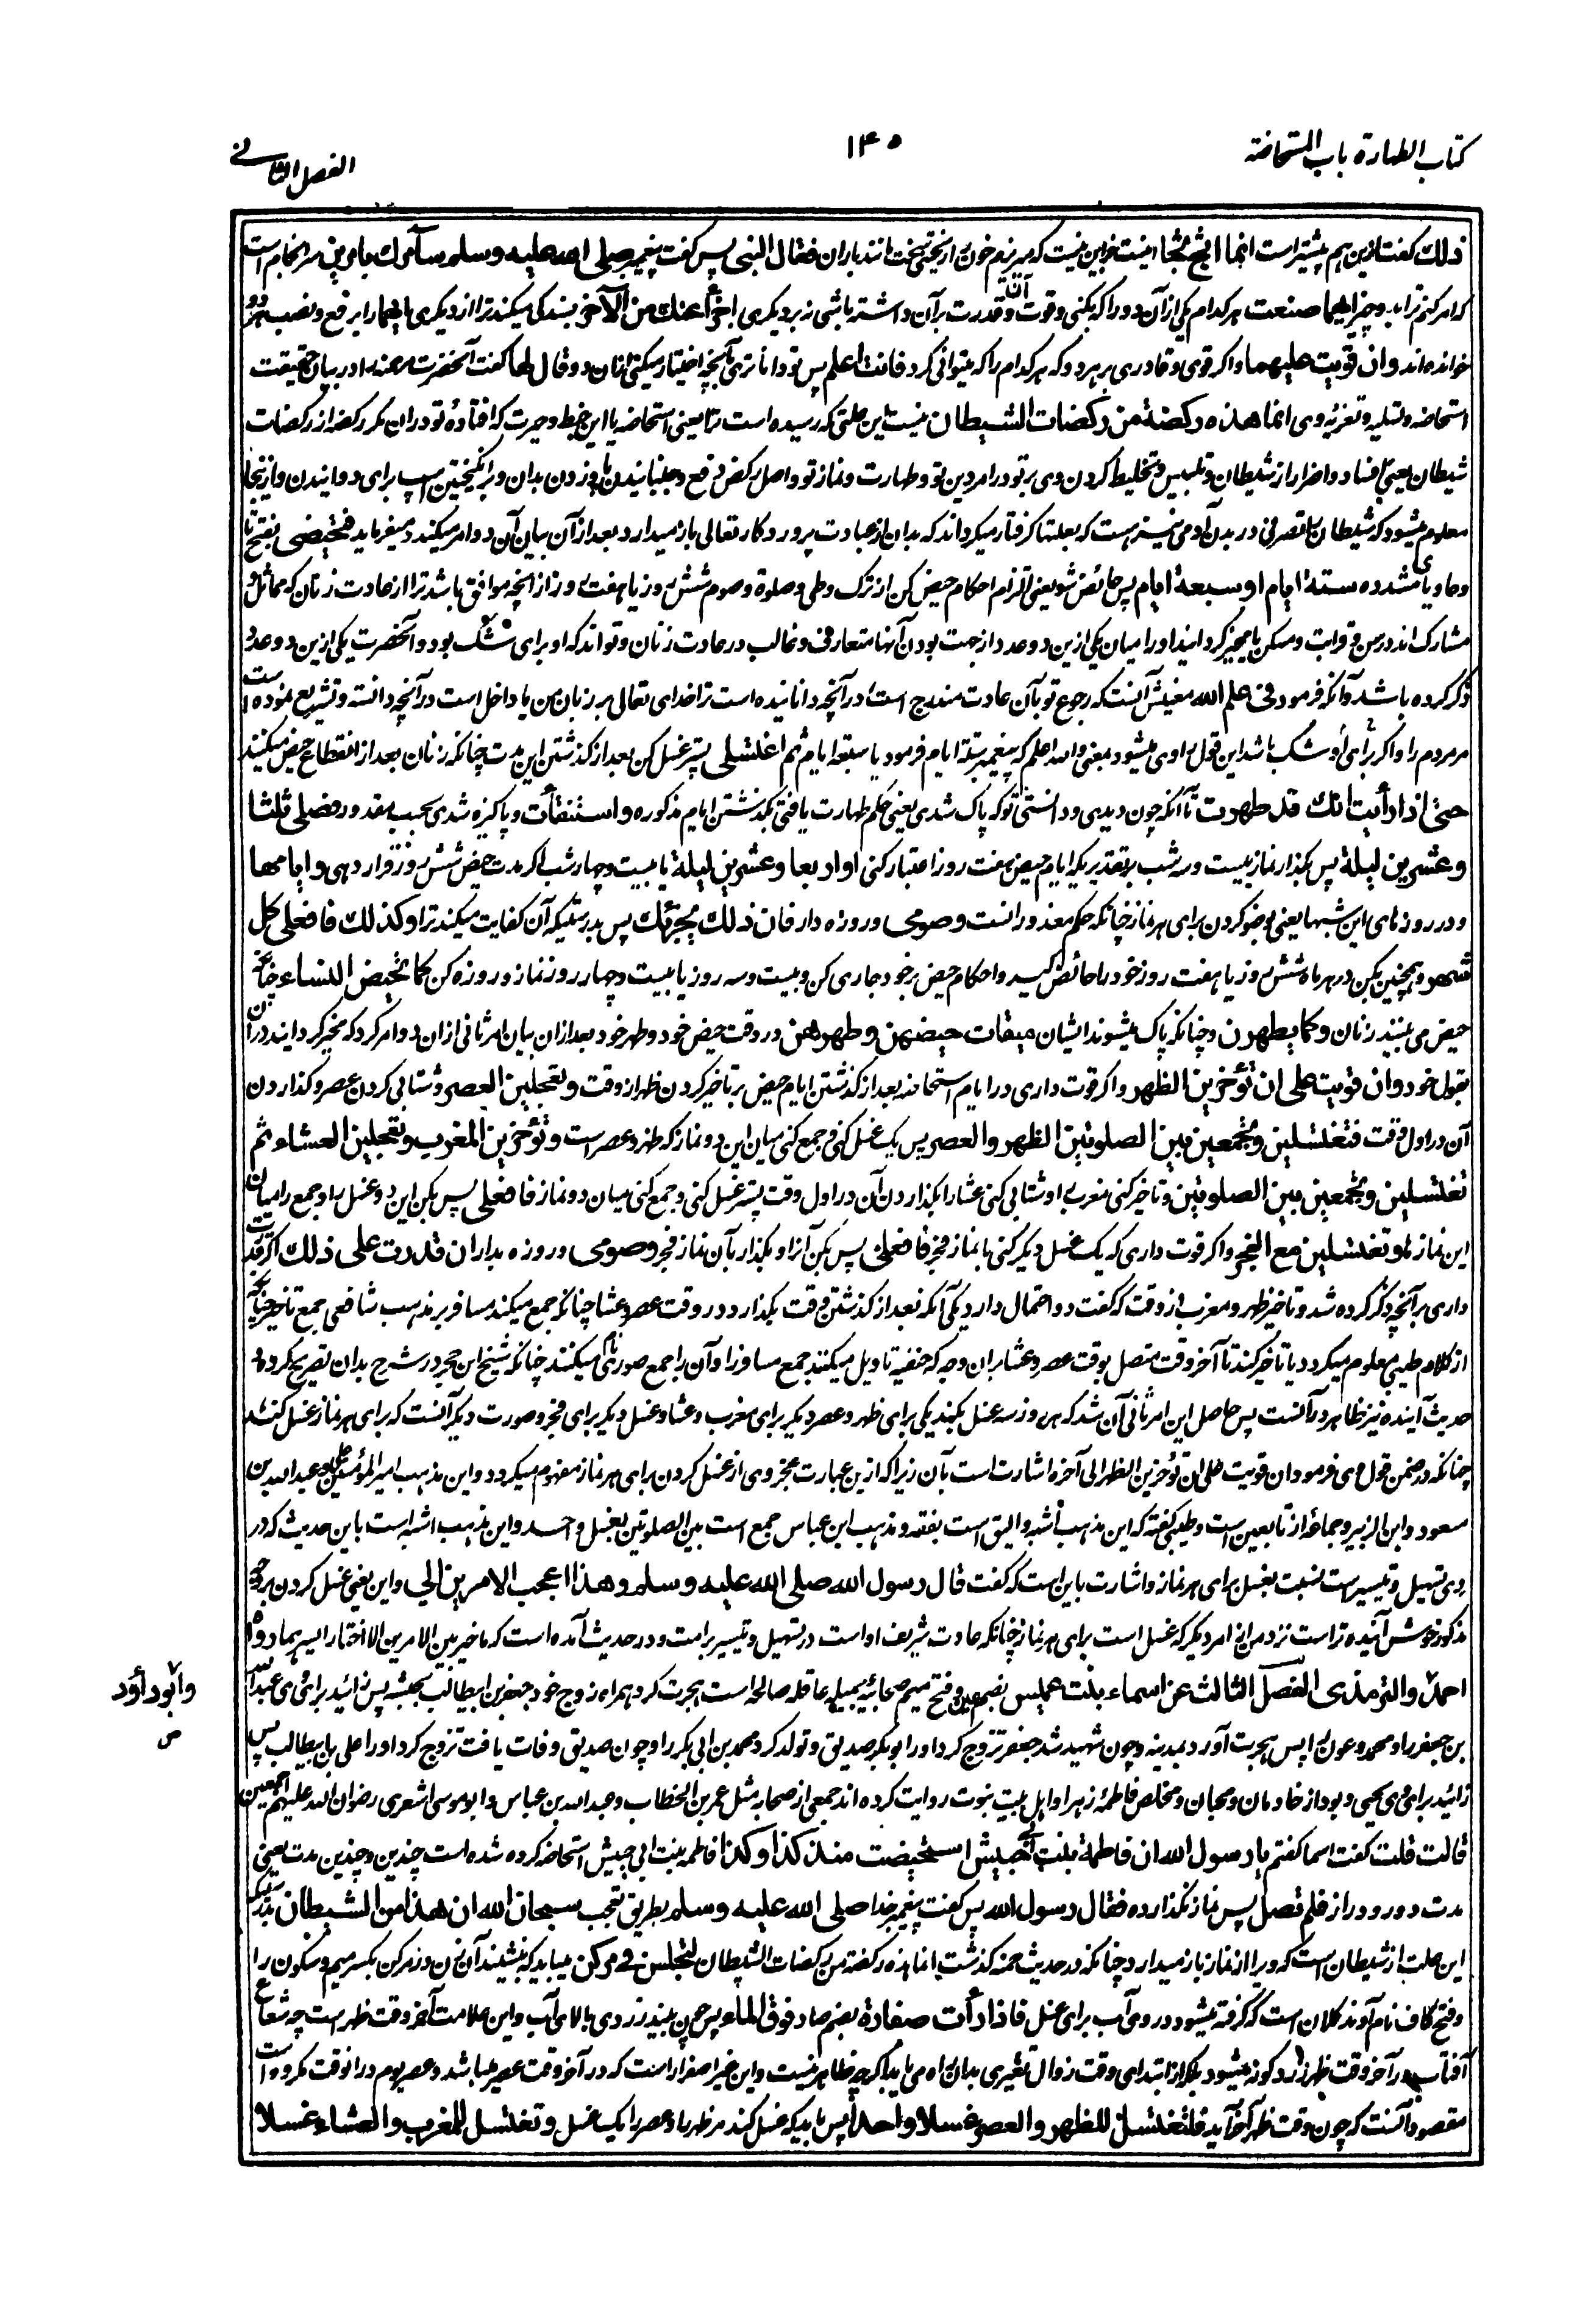 كتاب الطهارة باب المستحاضة
۱۴۰
الفصل الثانے
ذلك گفت ازین هم بیشتر است انما اثج ثجا نیست خبر این نیست که میریزم خون را ریختنی سخت مانند باران فقال النبی پس گفت پیغمبر صلی الله علیه وسلم سآمرك بامرین سرانجام است
که امر کنم ترا بدو چیز ایهما صنعت هر کدام یکی از آن دو را که بکنی وقوت و قدرت بر آن داشته باشی نه بر دیگری اجزأ عنك من الآخر بسندگی میکند ترا از دیگری ایهما را برفع و نصب هر دو
خوانده اند وان قویت علیهما و اگر قوی و قادری بر هر دو که هر کدام را که میتوانی کرد فانت اعلم پس تو داناتری بآنچه اختیار میکنی ازان دو وقال لها گفت آنحضرت مر حمنه را در بیان حقیقت
استحاضه و تسلیه و تعزیه وی انما هذه ركضة من ركضات الشیطان نیست این علتی که رسیده است ترا یعنی استحاضه یا این خبط و حیرت که افتاده تو دران مگر رکضه از رکضات
شیطان یعنی افساد و اضرار از شیطان و تلبیس و تخلیط کردن وی بر تو در امر دین تو و طهارت و نماز تو و اصل رکض دفع و جنبانیدن پا و زدن بدان و برانگیختن اسپ برای دوانیدن و ازینجا
معلوم میشود که شیطان را تصرفی در بدن آدمی نیز هست که بعلتها گرفتار میگرداند که بدان از عبادت پروردگار تعالی باز میدارد بعد ازان بیان آن دو امر میکند و میفرماید فتحیضی بفتح تا
وحا و یای مشدده ستة ایام او سبعة ایام پس حائض شو یعنی التزام احکام حیض کن از ترک وطی و صلوة و صوم شش روز یا هفت روز از آنچه موافق باشد ترا از عادت زنان که مماثل و
مشارک اند در سن و قرابت و مسکن یا مخیر گردانید او را میان یکی ازین دو عدد از جهت بودن آنها متعارف و غالب در عادت زنان و تواند که او برای شک بود و آنحضرت یکی ازین دو عدد
ذکر کرده باشد و آنکه فرمود فی علم الله معنیش آنست که رجوع تو بآن عادت مندرج است در آنچه دانانیده است ترا خدای تعالی بر زبان من یا داخل است در آنچه دانسته و تشریع نموده است
مر مردم را و اگر برای او شک باشد این قول راوی میشود بمعنی والله اعلم که پیغمبر ستة ایام فرمود یا سبعة ایام ثم اغتسلی پستر غسل کن بعد از گذشتن این مدت چنانکه زنان بعد از انقطاع حیض میکنند
حتی اذا رأیت انك قد طهرت تا آنکه چون دیدی و دانستی تو که پاک شدی یعنی حکم طهارت یافتی بگذشتن ایام مذکوره واستنقأت و پاکیزه شدی بحسب مقدور فصلی ثلثا
وعشرین لیلة پس بگذار نماز بیست و سه شب بر تقدیریکه ایام حیض هفت روز اعتبار کنی او اربعا وعشرین لیلة یا بیست و چهار شب اگر مدت حیض شش روز قرار دهی وایامها
و در روزهای این شبها یعنی وضو کردن برای هر نماز چنانکه حکم معذور انست وصومی و روزه دار فان ذلك یجزئك پس بدرستیکه آن کفایت میکند ترا وكذلك فافعلی كل
شهر و همچنین بکن در هر ماه شش روز یا هفت روز خود را حائض گیر و احکام حیض بر خود جاری کن و بیست و سه روز یا بیست و چهار روز نماز و روزه کن كما تحیض النساء چنانچه
حیض می بینند زنان وكما یطهرن و چنانکه پاک میشوند ایشان میقات حیضهن وطهرهن در وقت حیض خود و طهر خود بعد ازان بیان امر ثانی ازان دو امر کرد که مخیر گردانید در آن
بقول خود وان قویت علی ان تؤخرین الظهر و اگر قوت داری در ایام استحاضه بعد از گذشتن ایام حیض بر تاخیر کردن ظهر از وقت وتعجلین العصر و شتابی کردن عصر و گذاردن
آن در اول وقت فتغتسلین وتجمعین بین الصلوتین الظهر والعصر پس یک غسل کنی و جمع کنی میان این دو نماز که ظهر و عصر است وتؤخرین المغرب وتعجلین العشاء ثم
تغتسلین وتجمعین بین الصلوتین و تاخیر کنی مغرب را و شتابی کنی عشا را بگذاردن آن در اول وقت پستر غسل کنی و جمع کنی میان دو نماز فافعلی پس بکن این دو غسل را و جمع را میان
این نمازها وتغتسلین مع الفجر و اگر قوت داری که یک غسل دیگر کنی با نماز فجر فافعلی پس بکن آنرا و بگذار بآن نماز فجر وصومی و روزه بدار ان قدرت علی ذلك اگر قدرت
داری بر آنچه ذکر کرده شد و تاخیر ظهر و مغرب از وقت که گفت دو احتمال دارد یکی آنکه بعد از گذشتن وقت بگذارد در وقت عصر و عشا چنانکه جمع میکند مسافر بمذهب شافعی جمع تاخیر چنانچه
از کلام طیبی معلوم میگردد یا تاخیر کند تا آخر وقت متصل بوقت عصر و عشا بران وجه که حنفیه تاویل میکنند جمع مسافر را و آن را جمع صوری نام میکنند چنانکه شیخ ابن حجر در شرح بدان تصریح کرده و
حدیث آینده نیز ظاهر در آنست پس حاصل این امر ثانی آن شد که هر روز سه غسل بکند یکی برای ظهر و عصر دیگر برای مغرب و عشا و غسل دیگر برای فجر و صورت دیگر آنست که برای هر نماز غسل کنند
چنانکه در ضمن قول وی فرمود ان قویت علی ان تؤخرین الظهر الی آخره اشارت است بآن زیرا که ازین عبارت عجز وی از غسل کردن برای هر نماز مفهوم میگردد و این مذهب امیرالمؤمنین علی و عبدالله بن
مسعود و ابن الزبیر و جماعه از تابعین است و طیبی گفته که این مذهب اشبه و الیق است بفقه و مذهب ابن عباس جمع است بین الصلوتین بغسل واحد و این مذهب اشبه است باین حدیث که در
وی تسهیل و تیسیر است نسبت بغسل برای هر نماز و اشارت باین است که گفت قال رسول الله صلی الله علیه وسلم وهذا اعجب الامرین الی و این یعنی غسل کردن بر وجه
مذکور خوش آینده تر است نزد من از امر دیگر که غسل است برای هر نماز چنانکه عادت شریف او است در تسهیل و تیسیر بر امت و در حدیث آمده است که ما خیر بین الامرین الا اختار ایسرهما رواه
احمد والترمذی الفصل الثالث عن اسماء بنت عمیس بضم عین و فتح میم صحابیه جمیله عاقله صالحه است هجرت کرد همراه زوج خود جعفر بن ابیطالب بحبشه پس زائید برای وی عبدالله
وابوداؤد
ص
بن جعفر را و محمد و عون را پس هجرت آورد بمدینه و چون شهید شد جعفر تزوج کرد او را ابوبکر صدیق و تولد کرد محمد بن ابی بکر را و چون صدیق وفات یافت تزوج کرد او را علی بن ابیطالب پس
زائید برای وی یحیی و بود از خادمان و محبان و مخلص فاطمه زهرا و اهل بیت نبوت روایت کرده اند جمعی از صحابه مثل عمر بن الخطاب و عبدالله بن عباس و ابو موسی اشعری رضوان الله علیهم اجمعین
قالت قلت گفت اسما گفتم یا رسول الله ان فاطمة بنت ابی حبیش استحیضت منذ كذا وكذا فاطمه بنت ابی حبیش استحاضه کرده شده است چندین و چندین مدت یعنی
مدت دور و دراز فلم تصل پس نماز نگذارده فقال رسول الله پس گفت پیغمبر خدا صلی الله علیه وسلم بطریق تعجب سبحان الله ان هذا من الشیطان بدرستیکه
این علت از شیطان است که ویرا از نماز باز میدارد چنانکه در حدیث حمنه گذشت انما هذه رکضة من رکضات الشیطان لتجلس فی مركن میباید که بنشیند آن زن در مرکن بکسر میم و سکون را
و فتح کاف نام آوند کلان است که گرفته میشود در وی آب برای غسل فاذا رأت صفارة بضم صاد فوق الماء پس چون بیند زردی بالای آب و این علامت آخر وقت ظهر است چه شعاع
آفتاب در آخر وقت ظهر زرد گونه میشود بلکه از ابتدای وقت زوال تغیری بدان راه می یابد اگرچه ظاهر نیست و این غیر اصفرار است که در آخر وقت عصر میباشد و عصر هم در انوقت مکروه است
مقصود آنست که چون وقت ظهر آخر آید فلتغتسل للظهر والعصر غسلا واحدا پس باید که غسل کند مر ظهر را و عصر را یک غسل وتغتسل للمغرب والعشاء غسلا